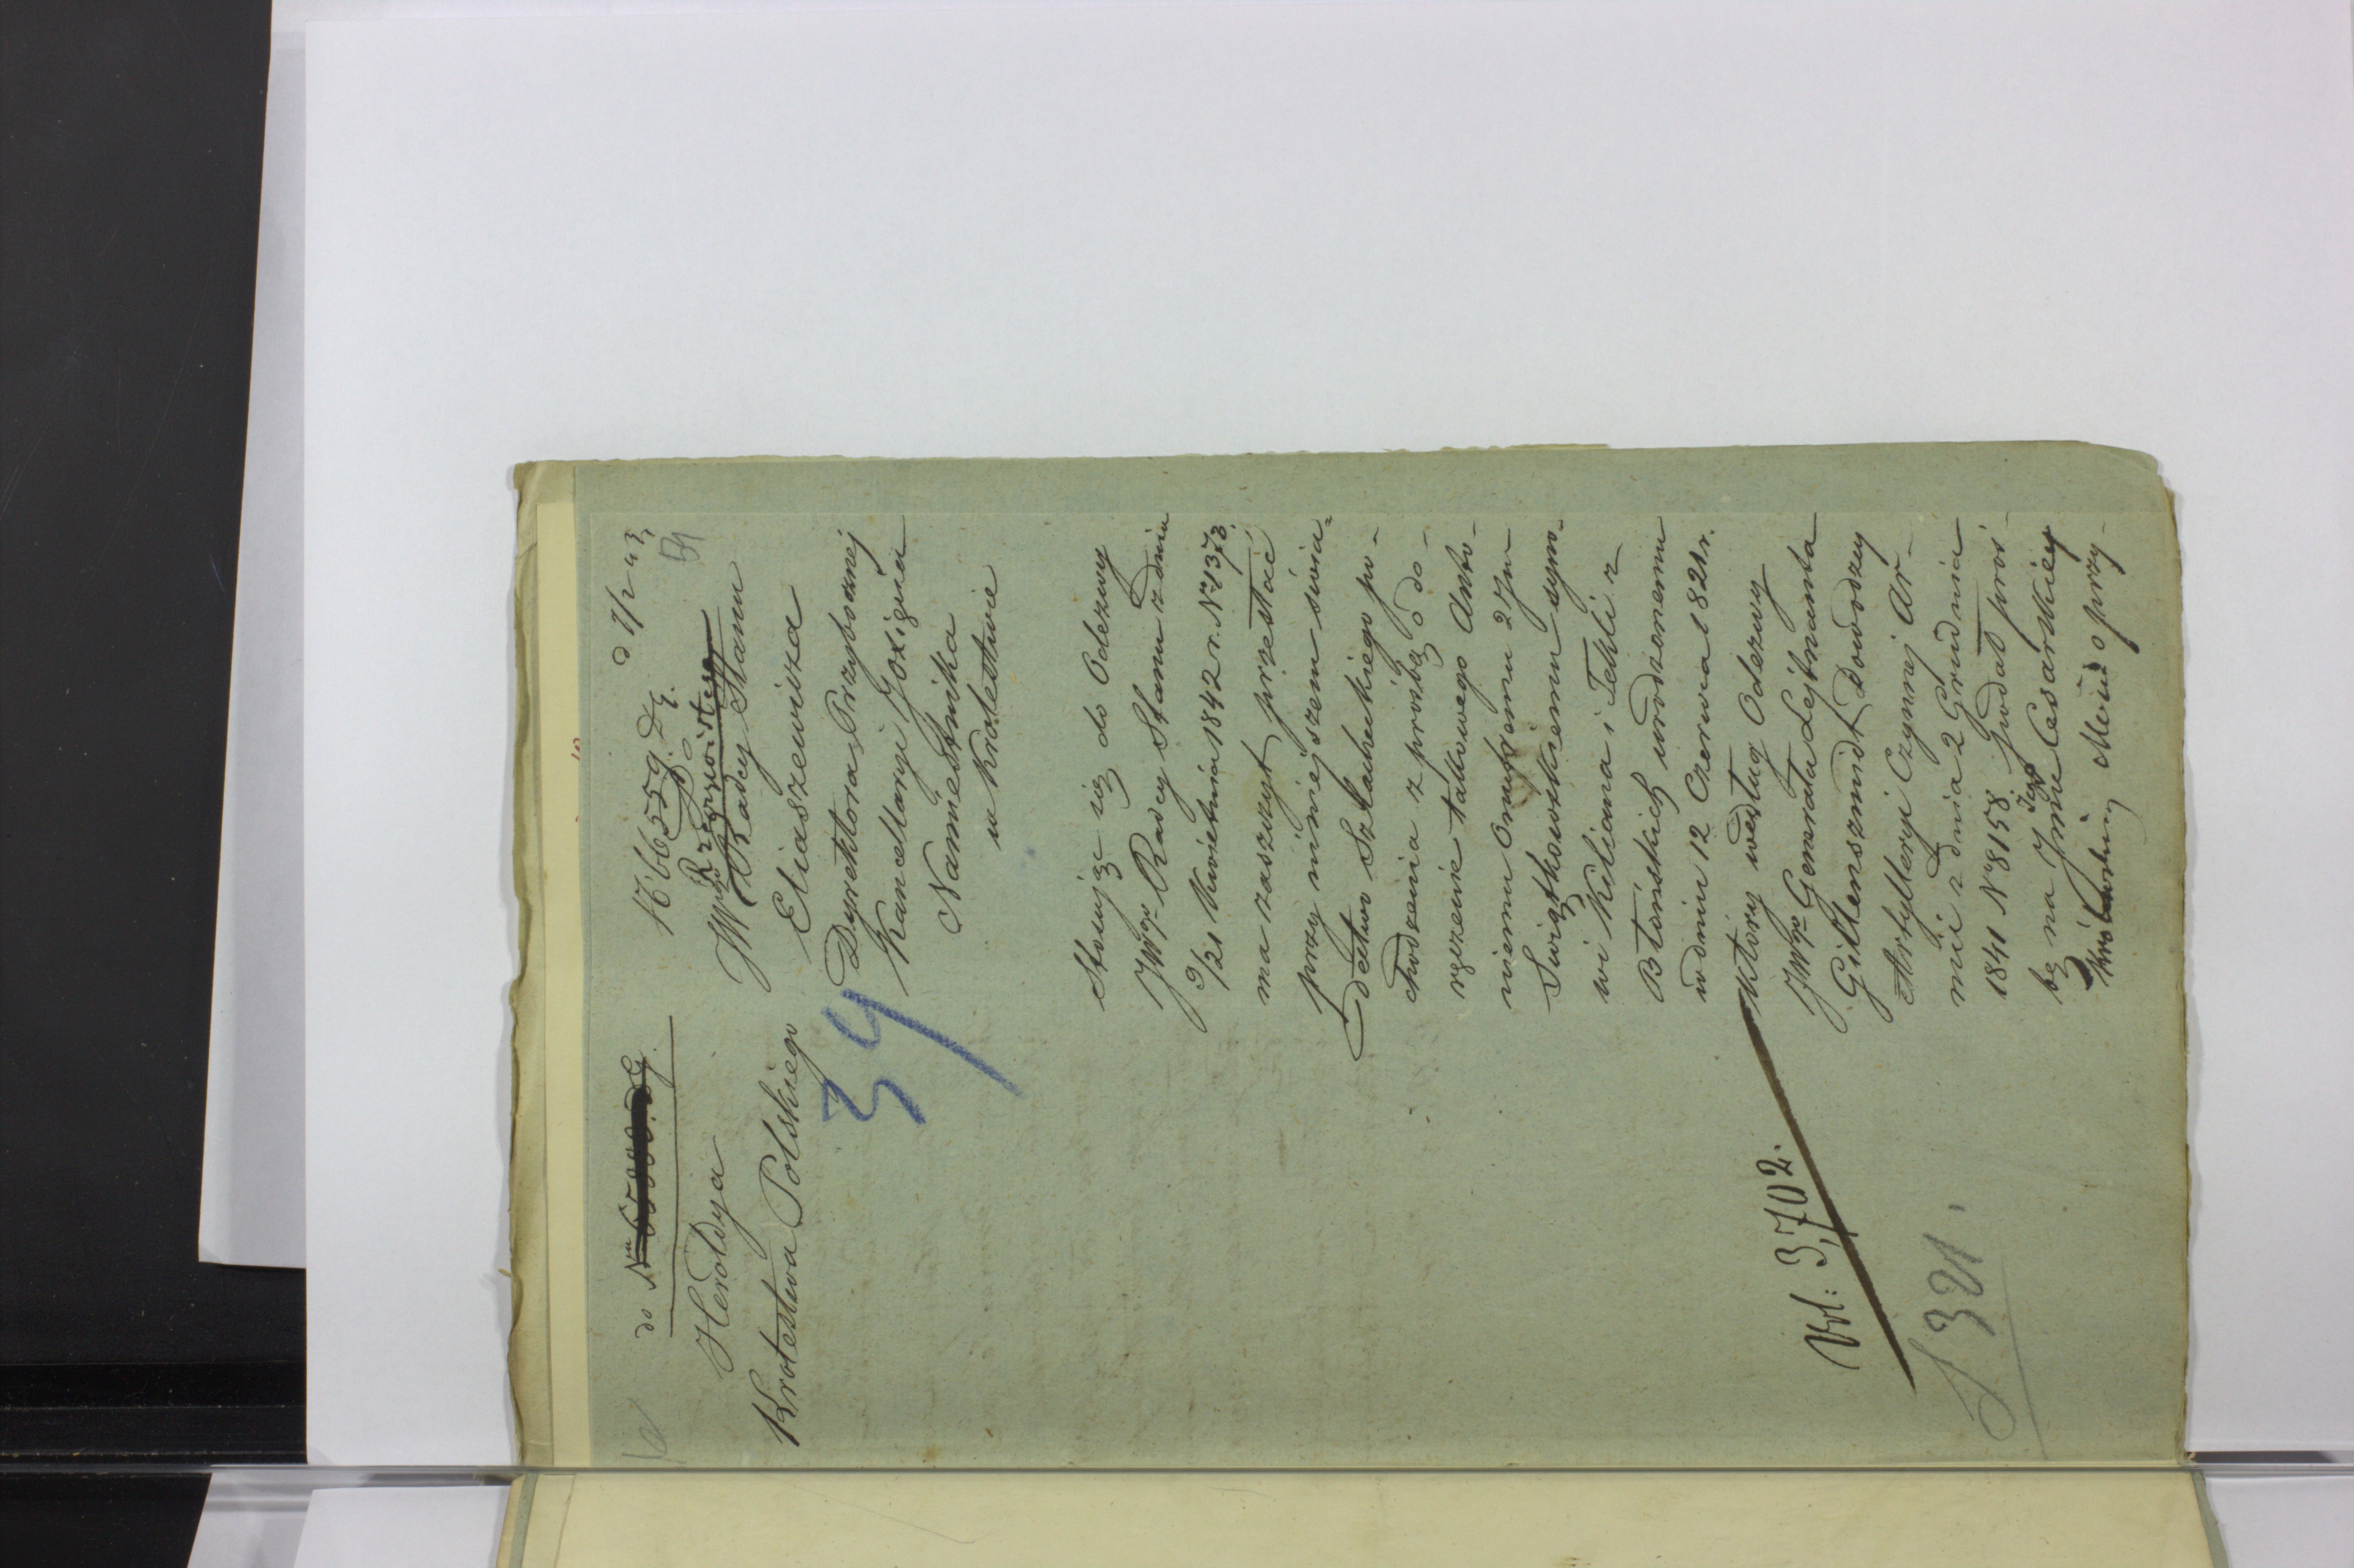 do Nru
Heroldya
Królestwa Polskiego
34
Vol: 3,702.
N 6559. Dz.
JWgo Rzeczywistego
Radcy Stanu
Eliaszewicza
Dyrektora Przybocznej
Kancellaryi JOxięcia
Namiestnika
w Królestwie
Stosując się do Odezwy
JWgo Radcy Stanu z dnia
9/21 Kwietnia 1842 r. No 1373.
ma zaszczyt przesłać
przy niniejszem świa=
dectwo Szlacheckiego po-
chodzenia z prosbą o do-
ręczenie takowego Anto-
niemu Onufremu 2 Jm
Swiątkowskiemu syno-
wi Kiliana i Tekli z
Błońskich urodzonemu
w dniu 12 Czerwca 1821 r.
który według Odezwy
JWgo Generała Lejtnanta
Gillenszmidt Dowodzcy
Artylleryi Czynnej Ar-
mii z dnia 2 Grudnia
1841 No 8158. podał proś-
bę na Imie Jego Cesarskiey
Królewskiey Mości o przy-